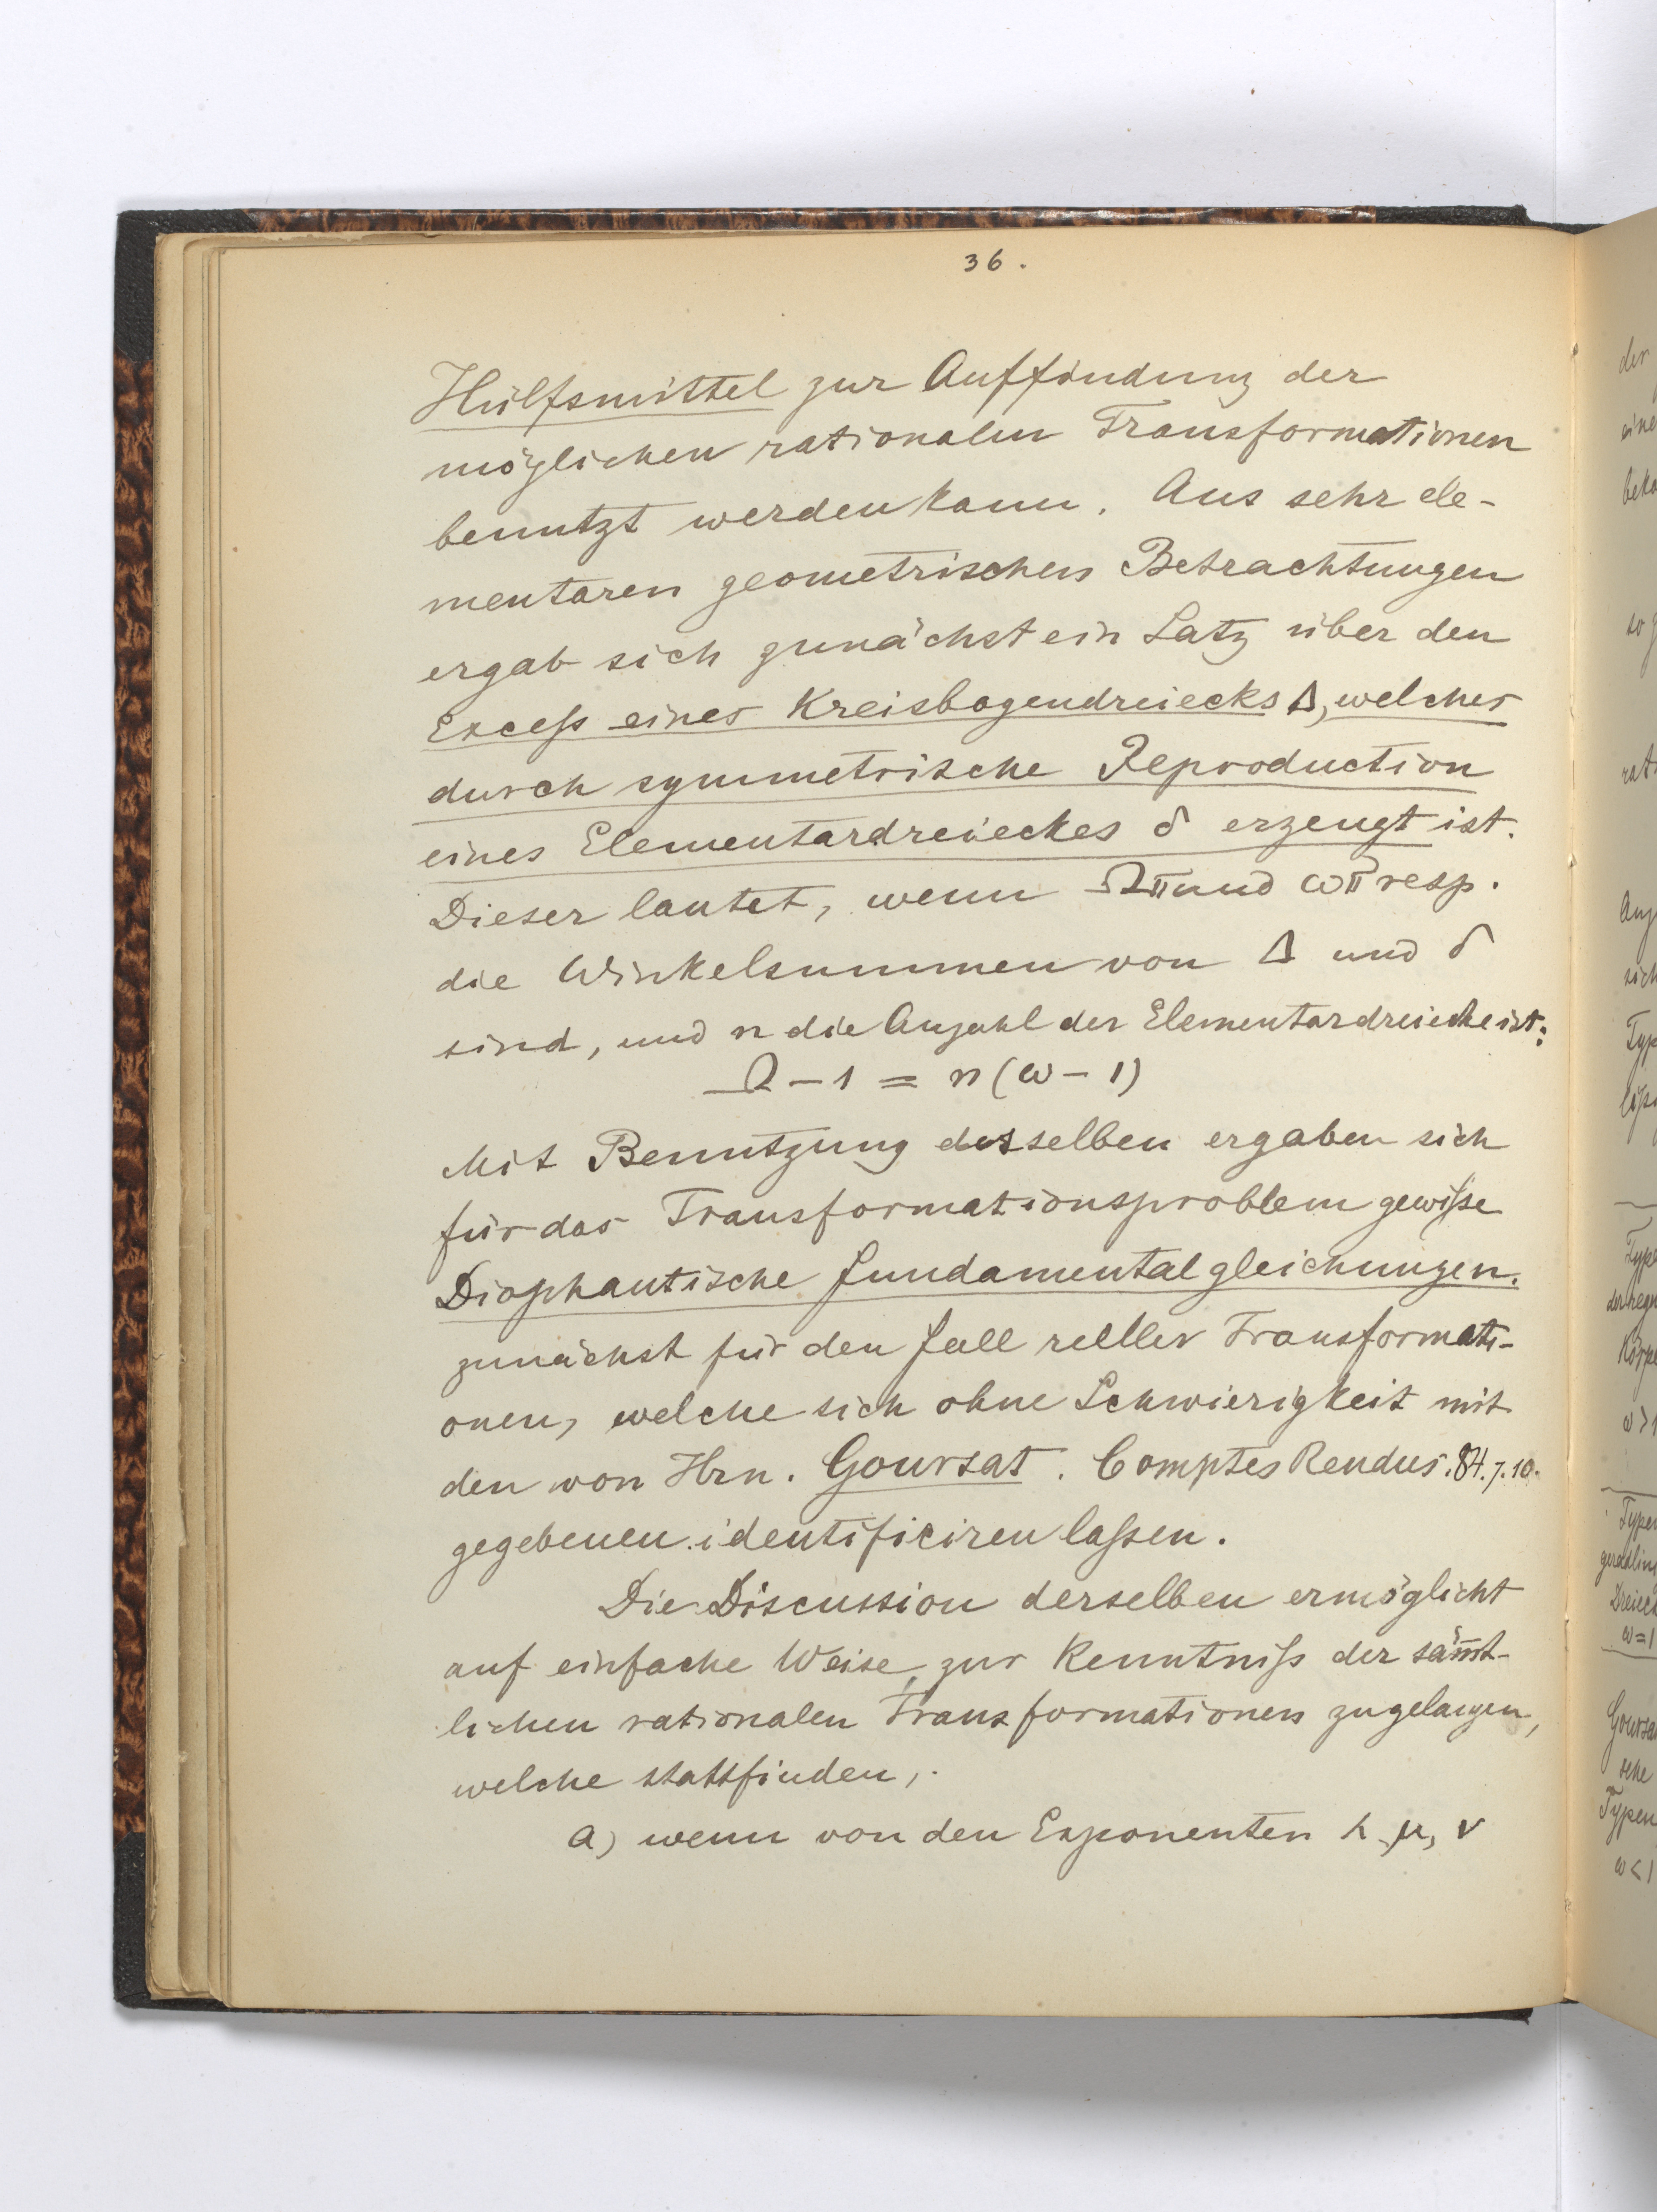 36.
Hülfsmittel zur Auffindung der
möglichen rationalen Transformationen
benutzt werden kann. Aus sehr ele-
mentaren geometrischen Betrachtungen
ergab sich zunächst ein Satz über den
Exceſs eines Kreisbogendreiecks Δ, welches
durch symmetrische Reproduction
eines Elementardreieckes δ erzeugt ist.
Dieser lautet, wenn Ωπ und ωπ resp.
die Winkelsummen von Δ und δ
sind, und n die Anzahl der Elementardreiecke ist:
Ω – 1 = n (ω – 1)
Mit Benutzung desselben ergaben sich
für das Transformationsproblem gewiſse
Diophantische Fundamentalgleichungen.
zunächst für den Fall reller Transformati-
onen, welche sich ohne Schwierigkeit mit
den von Hrn. Goursat. Comptes Rendus. 84. 7. 10.
gegebenen identificiren laſsen.
Die Discussion derselben ermöglicht
auf einfache Weise, zur Kenntniſs der säm̅t-
lichen rationalen Transformationen zu gelangen,
welche stattfinden,
a) wenn von den Exponenten λ, μ, ν
der
eine
beko
so g
rat
Ang
sich
Typ
Type
der regu
Körpe
ω > 1
Typen
geradlin
Dreieck
ω = 1
Goursa
sche
Typen
ω < 1